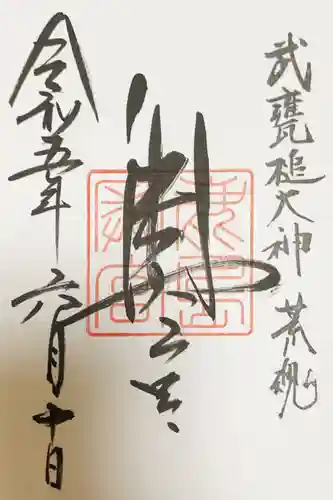 武甕槌大神 荒魂
鹿島
奥宮
令和五年六月十日